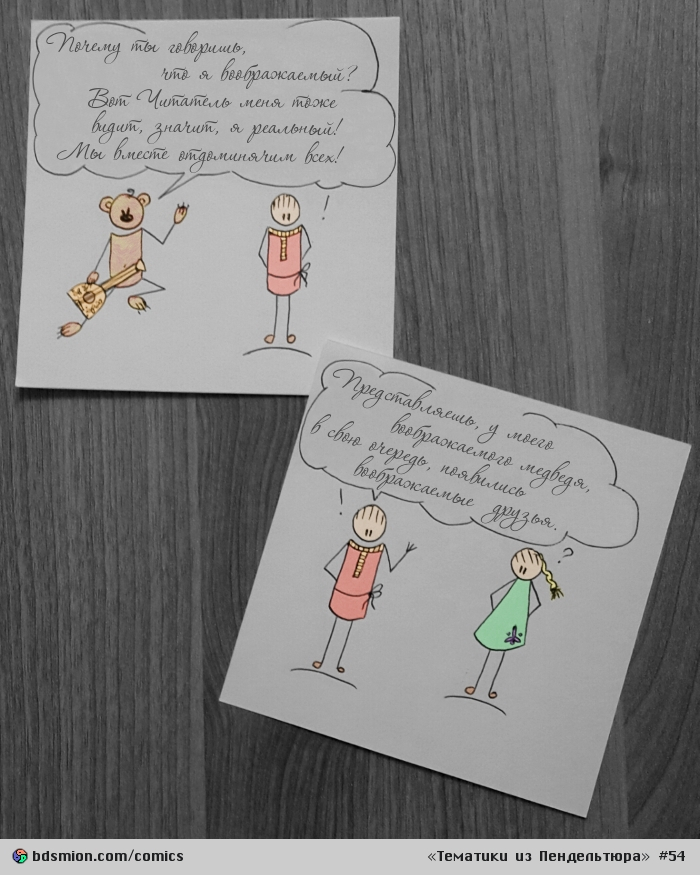 Почему ты говоришь,
что я воображаемый?
Вот Читатель меня тоже
видит, значит, я реальный!
Мы вместе отдоминячим всех!
!
Представляешь, у моего
воображаемого медведя,
в свою очередь, появились
воображаемые друзья.
!
?
bdsmion.com/comics
«Тематики из Пендельтюра» #54